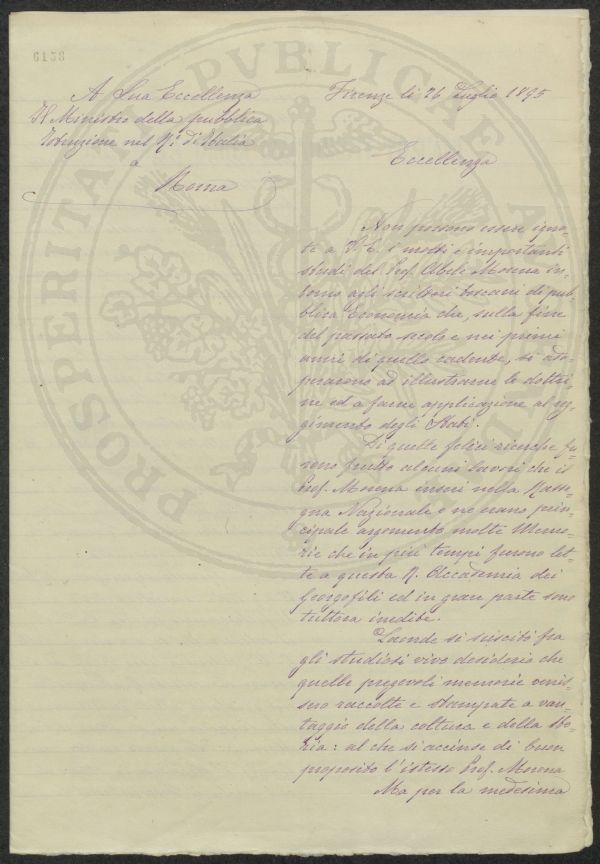 6158
A Sua Eccellenza
Il Ministro della pubblica
Istruzione nel R.º d'Italia
a
Roma
Firenze li 26 Luglio 1895
Eccellenza
Non possono essere igno-
te a V. E. i molti e importanti
studi del Prof. Abele Morena in-
torno agli scrittori toscani di pub-
blica Economia che, sulla fine
del passato secolo e nei primi
anni di quello cadente, si ado-
prarono ad illustrarne le dottri-
ne ed a farne applicazione al reg-
gimento degli Stati.
Di quelle felici ricerche fu-
rono frutto alcuni lavori che il
Prof. Morena inserì nella Rasse-
gna Nazionale e ne erano prin-
cipale argomento molte Memo-
rie che in più tempi furono let-
te a questa R. Accademia dei
Georgofili ed in gran parte sono
tuttora inedite.
Laonde si suscitò fra
gli studiosi vivo desiderio che
quelle pregevoli memorie venis-
sero raccolte e stampate a van-
taggio della coltura e della Sto-
ria: al che si accinse di buon
proposito l'istesso Prof. Morena
Ma per la medesima
PROSPERITATI PVBLICAE